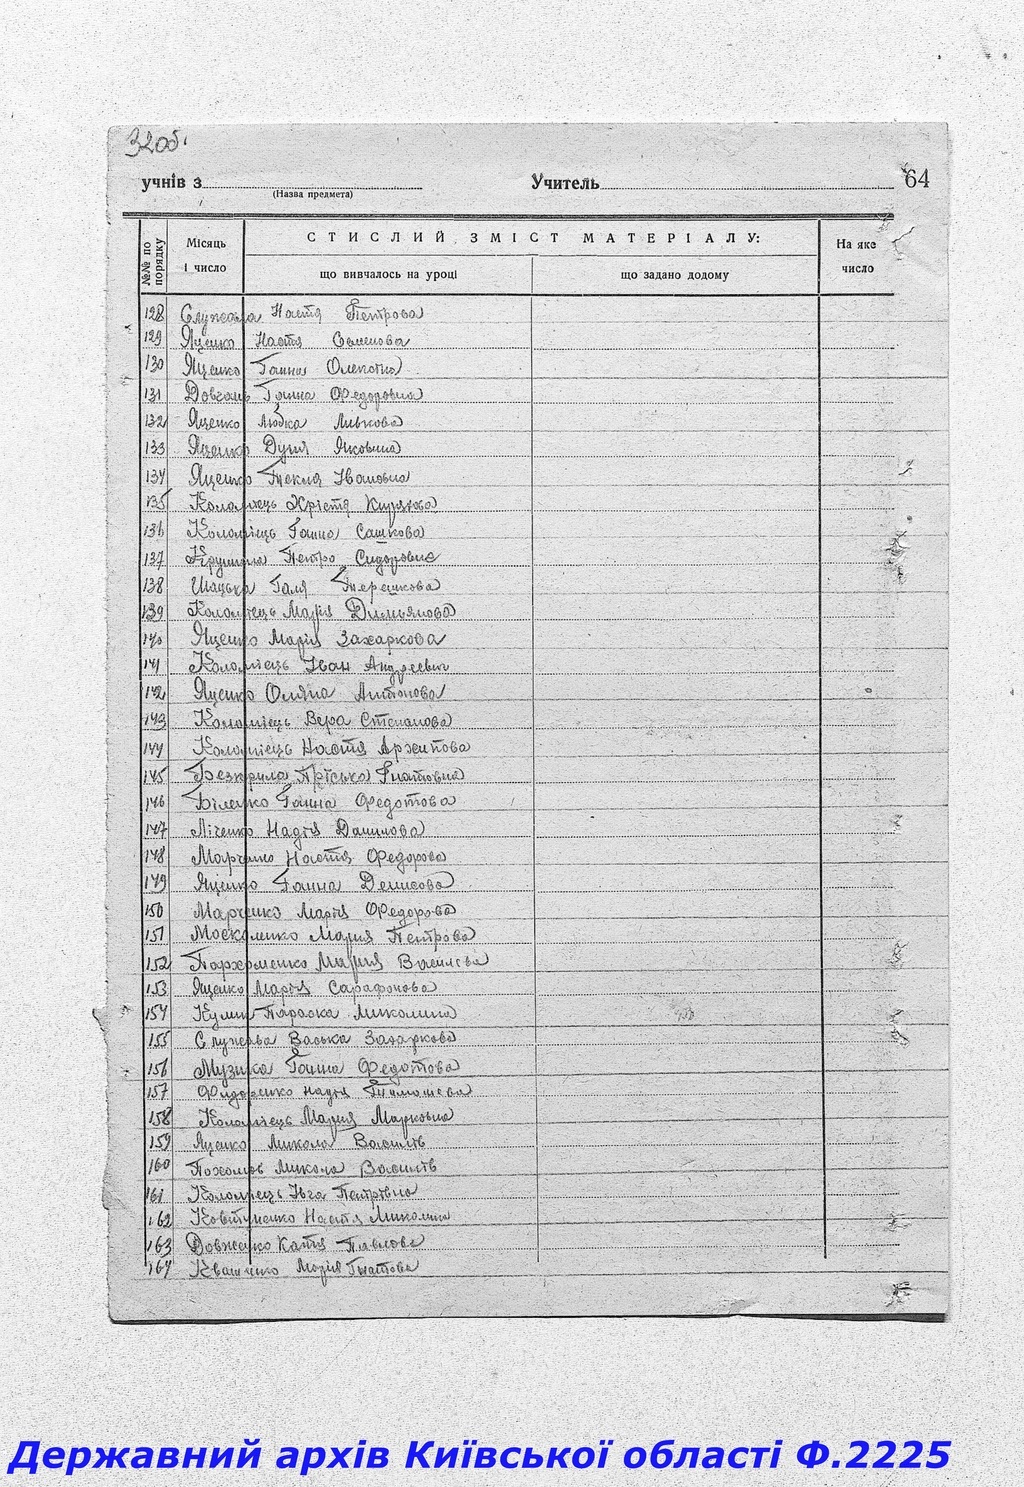 32об.
учнів з Учитель 64
(Назва предмета)
№№ по порядку
Місяць і число
СТИСЛИЙ ЗМІСТ МАТЕРІАЛУ:
що вивчалось на уроці
що задано додому
На яке число
128 Настя Петрова
129 Яценко Настя Семенова
130 Яценко Ганна
131 Ганна Федоровна
132 Яценко Любка Ливкова
133 Яценко Дуня Яковина
134 Яценко Текля Івановна
135 Коломієць Хрістя
136 Коломієць Ганна Сашкова
137 Петро Сидорович
138 Шацька Галя Терешкова
139 Коломієць Марія Димьянова
140 Яценко Марія Захаркова
141 Коломієць Іван Андреевич
142 Яценко Оляна Антонова
143 Коломієць Вера Степанова
144 Коломієць Настя Архипова
145 Безкрила Пріська Гнатовна
146 Біленко Ганна Федотова
147 Ліченко Надія Данилова
148 Марченко Настя Федорова
149 Яценко Ганна Денисова
150 Марченко Марія Федорова
151 Москаленко Мария Петрова
152 Пархоменко Мария Василєва
153 Яценко Марія Сарафонова
154 Параска Миколина
155 Васька Захаркова
156 Музика Ганна Федотова
157 Федоренко Надія Тимошева
158 Коломієць Мария Марковна
159 Яценко Микола Василів
160 Похомов Микола Василів
161 Коломієць Івга Петрівна
162 Ковтуненко Настя Миколина
163 Довженко Катя Павлова
164 Квашенко Марія Гнатова
Державний архів Київської області Ф.2225